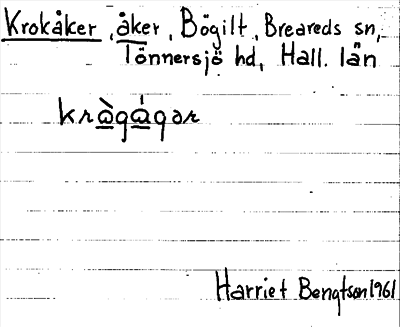 Krokåker, åker, Bögilt, Breareds sn,
Tönnersjö hd, Hall. län
kràgágər
Harriet Bengtson 1961